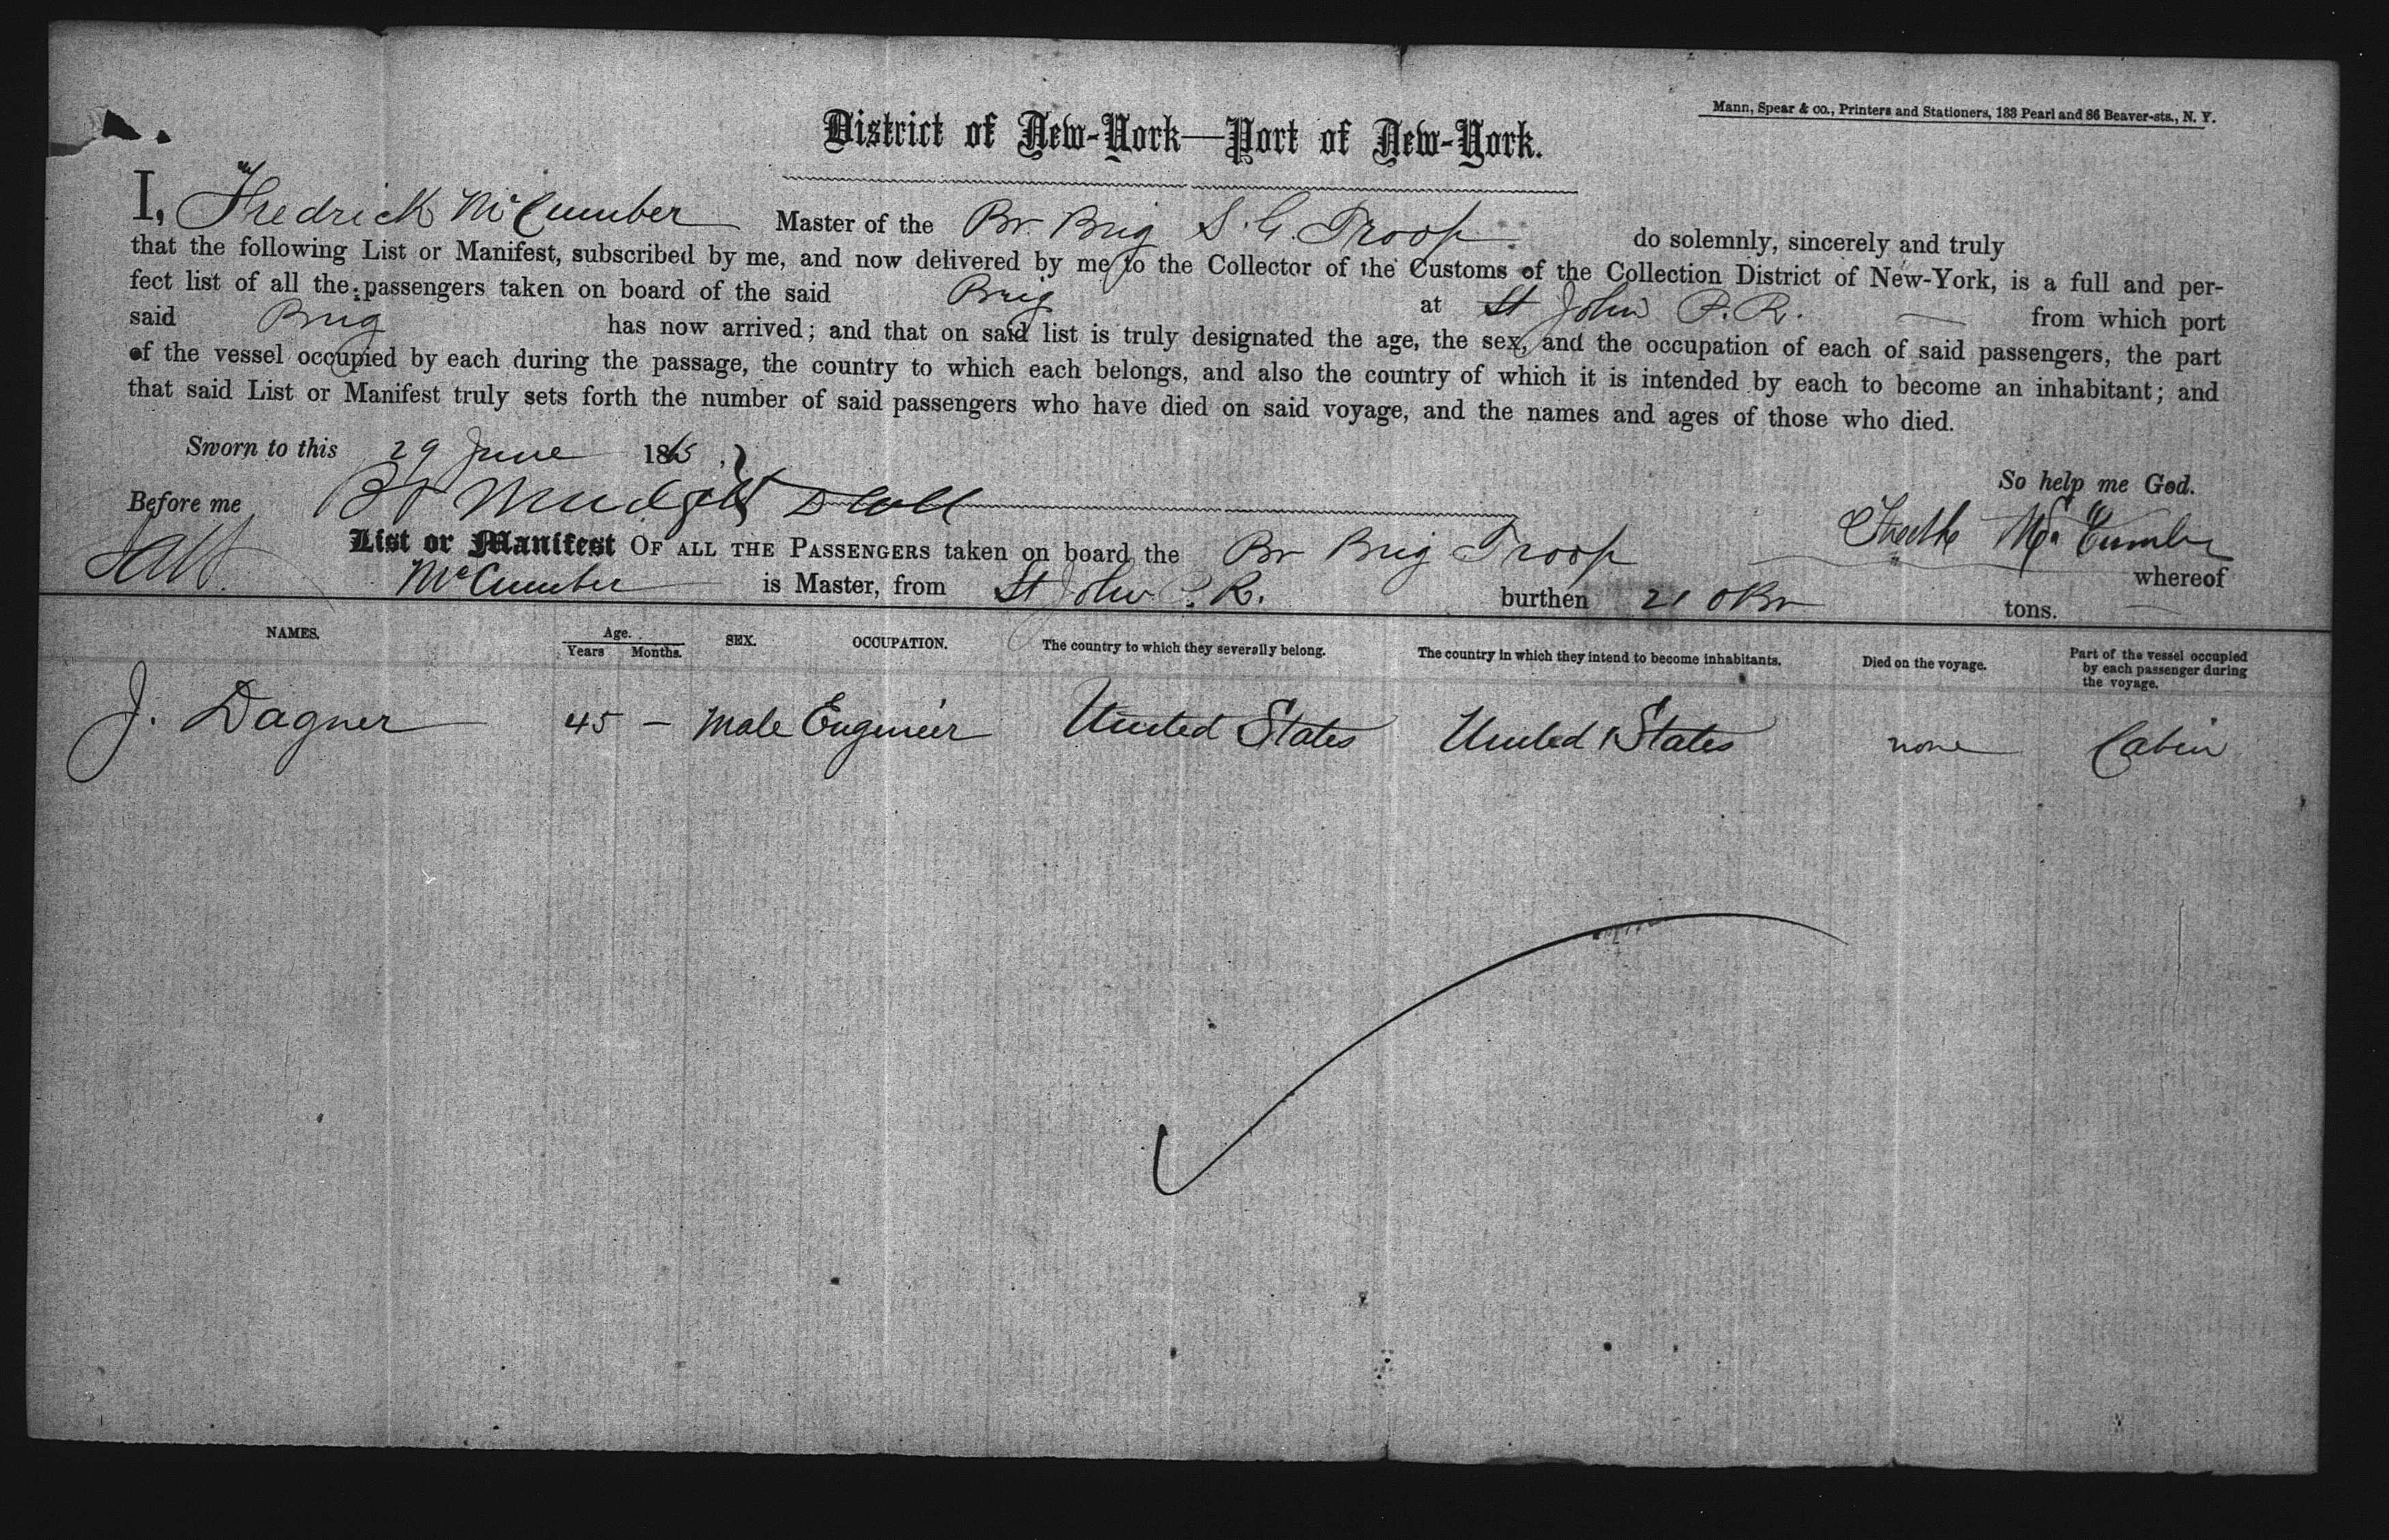 Mann, Spear & co., Printers and Stationers, 133 Pearl and 86 Beaver-sts., N. Y.
District of New-York—Port of New-York.
I, Fredrick McCumber Master of the Br. Brig S. G. Troop do solemnly, sincerely and truly
that the following List or Manifest, subscribed by me, and now delivered by me to the Collector of the Customs of the Collection District of New-York, is a full and per-
fect list of all the passengers taken on board of the said Brig at St John P. R. from which port
said Brig has now arrived; and that on said list is truly designated the age, the sex, and the occupation of each of said passengers, the part
of the vessel occupied by each during the passage, the country to which each belongs, and also the country of which it is intended by each to become an inhabitant; and
that said List or Manifest truly sets forth the number of said passengers who have died on said voyage, and the names and ages of those who died.
Sworn to this 29 June 1865
So help me God.
Before me
List or Manifest OF ALL THE PASSENGERS taken on board the Br Brig Troop whereof
McCumber is Master, from St John P. R. burthen 210 tons.
NAMES. Age. Years Months. SEX. OCCUPATION. The country to which they severally belong. The country in which they intend to become inhabitants. Died on the voyage. Part of the vessel occupied by each passenger during the voyage.
J. Dagner 45 – Male Engineer United States United States none Cabin